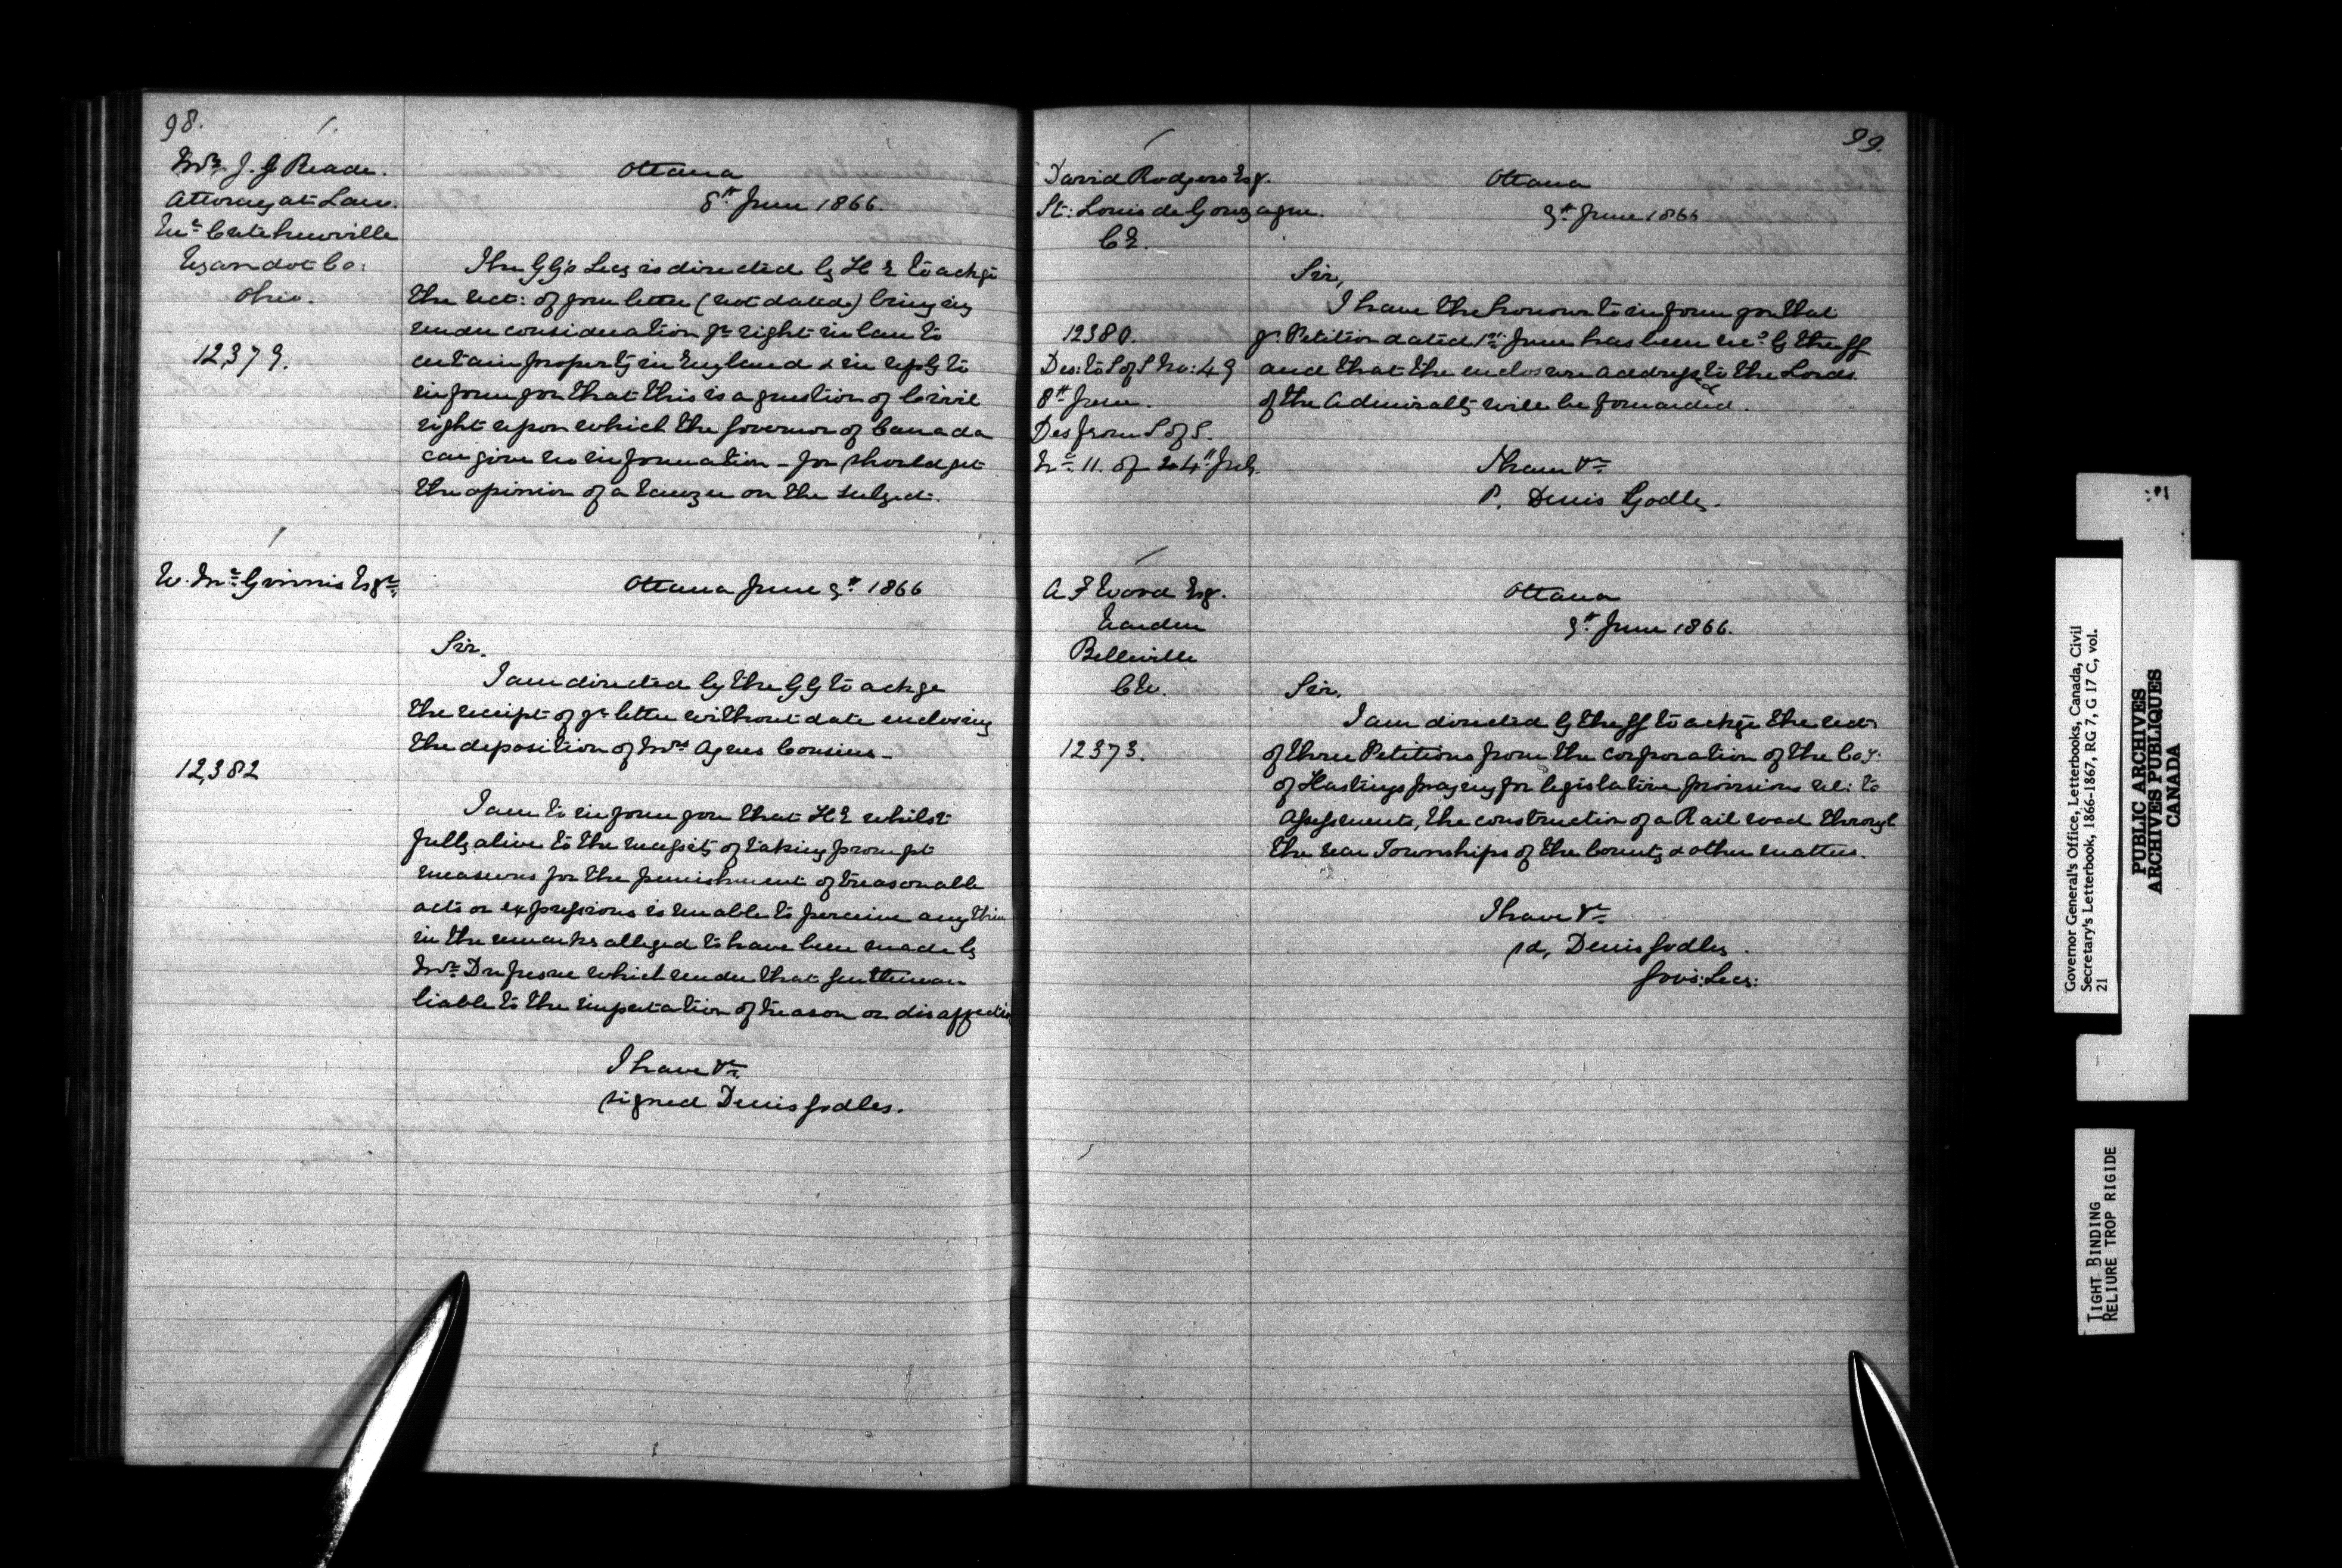 98.
Mr. J. G Reade.
Attorney at Law.
Mc Cutchenville
Wyandot Co:
Ohio.
12,379.
Ottawa
8th June 1866.
The GG's Secy is directed by H E to ackge
the rect: of your letter (not dated) bringing
under consideration yr right in law to
certain property in England & in reply to
inform you that this is a question of Civil
right upon which the Governor of Canada
can give no information - you should get
the opinion of a Lawyer on the subject.
W. Mc Ginnis Esqre,
12,382
Ottawa June 9th 1866
Sir.
I am directed by the GG to ackge
the receipt of yr letter without date enclosing
the deposition of Mrs Agnes Cousins -
I am to inform you that H E whilst
fully alive to the necessity of taking prompt
measures for the punishment of treasonable
acts or expressions is unable to perceive any thin
in the remarks alleged to have been made by
Mr. Dufresne which render that Gentleman
liable to the imputation of treason or disaffection
I have &c.
signed Denis Godley.
99.
David Rodgers Esq.
St: Louis de Gonzague.
C E.
12380.
Des: to S of S No: 49
8th June.
Des from S of S.
No. 11. of 24th Feb.
Ottawa
9th June 1866
Sir,
I have the honour to inform you that
yr Petition dated 1st June has been recd by the GG
and that the enclosure addressed to the Lords
of the Admiralty will be forwarded.
I have &c
P. Denis Godley.
A F Wood Esq.
Warden
Belleville
C W.
12373.
Ottawa
9th June 1866.
Sir.
I am directed by the GG to ackge the rect:
of three Petitions from the Corporation of the Coy:
of Hastings praying for legislative provisions rel: to
assessments, the construction of a Rail road through
the rear Townships of the County & other matters.
I have &c
sd, Denis Godley.
Gov's: Secy:
Governor General's Office, Letterbooks, Canada, Civil
Secretary's Letterbook, 1866-1867, RG 7, G 17 C, vol.
21
PUBLIC ARCHIVES
ARCHIVES PUBLIQUES
CANADA
TIGHT BINDING
RELIURE TROP RIGIDE